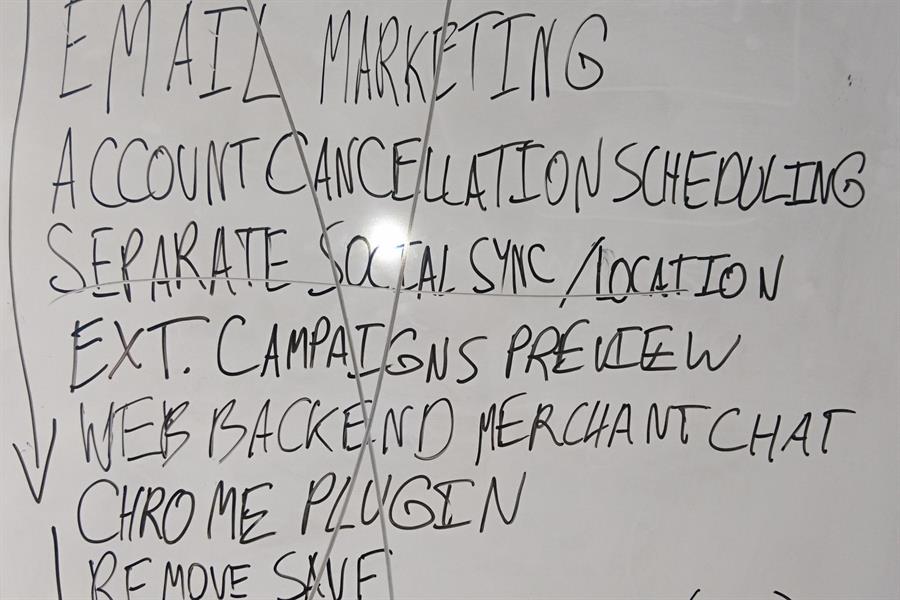 EMAIL MARKETING
ACCOUNT CANCELLATION SCHEDULING
SEPARATE SOCIAL SYNC / LOCATION
EXT. CAMPAIGNS PREVIEW
WEB BACKEND MERCHANT CHAT
CHROME PLUGIN
REMOVE SAVE